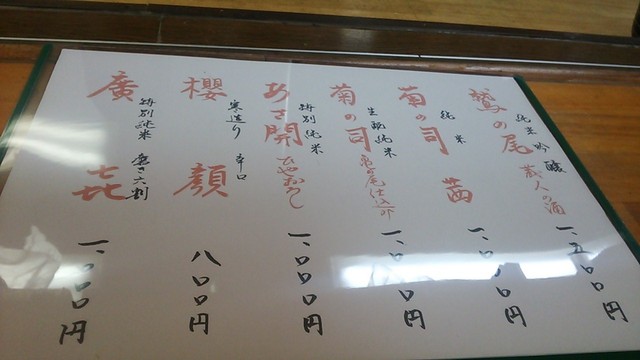 鷲の尾 純米吟醸 蔵人の酒 一、五〇〇円
菊の司 純米 茜 一、〇〇〇円
菊の司 生酛純米 亀の尾仕込 一、〇〇〇円
あさ開 特別純米 ひやおろし 一、〇〇〇円
櫻顔 寒造り 辛口 八〇〇円
廣喜 特別純米 磨き六割 一、〇〇〇円